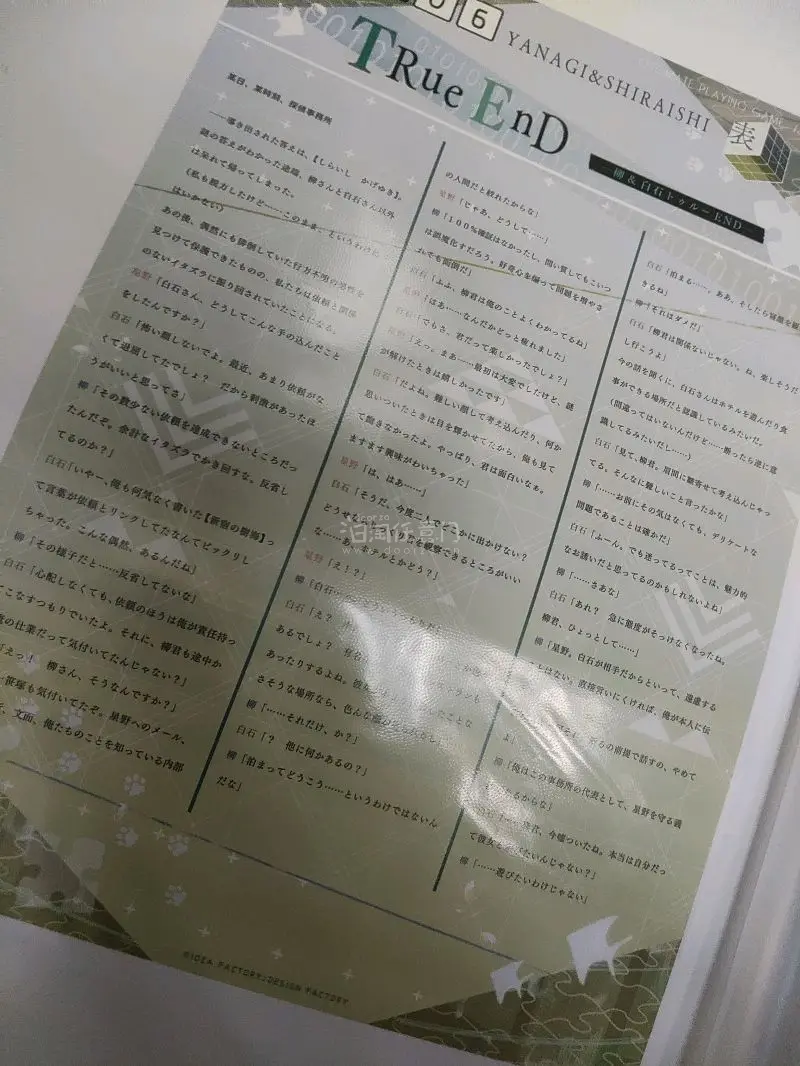 06
YANAGI&SHIRAISHI
TRue EnD
表
柳&白石トゥルーEND
某日、某時刻、探偵事務所
――導き出された答えは、【しらいし かげゆき】。
謎の答えがわかった途端、柳さんと白石さん以外
は呆れて帰ってしまった。
(私も脱力したけど……このまま、というわけに
はいかない)
あの後、偶然にも徘徊していた行方不明の男性を
見つけて保護できたものの、私たちは依頼と関係
のないイタズラに振り回されていたことになる。
星野「白石さん、どうしてこんな手の込んだこと
をしたんですか?」
白石「怖い顔しないでよ。最近、あまり依頼がな
くて退屈してたでしょ? だから刺激があったほ
うがいいと思ってさ」
柳「その数少ない依頼を達成できないところだっ
たんだぞ。余計なイタズラでかき回すな。反省し
てるのか?」
白石「いやー、俺も何気なく書いた【新宿の樹海】っ
て言葉が依頼とリンクしてたなんてビックリし
ちゃった。こんな偶然、あるんだね」
柳「その様子だと……反省してないな」
白石「心配しなくても、依頼のほうは俺が責任持っ
てこなすつもりでいたよ。それに、柳君も途中か
の仕業だって気付いてたんじゃない?」
「えっ! 柳さん、そうなんですか?」
笹塚も気付いてたぞ。星野へのメール、
文面、俺たちのことを知っている内部
の人間だと絞れたからな」
星野「じゃあ、どうして……」
柳「100%確証はなかったし、問い質してもこいつ
は誤魔化すだろう。好奇心を煽って問題を増やさ
れても面倒だ」
白石「ふふ、柳君は俺のことよくわかってるね」
星野「はあ……なんだかどっと疲れました」
白石「でもさ、君だって楽しかったでしょ?」
星野「えっ。まあ……最初は大変でしたけど、謎
が解けたときは嬉しかったです」
白石「だよね。難しい顔して考え込んだり、何か
思いついたときは目を輝かせてたから、俺も見て
て飽きなかったよ。やっぱり、君は面白いなぁ。
ますます興味がわいちゃった」
星野「は、はあ……」
白石「そうだ、今度二人でどこかに出かけない?
どうせなら、じっくり君を観察できるところがいい
な……あ、ホテルとかどう?」
星野「え!?」
柳「白石……どういうつもりだ」
白石「え?
あるでしょ? 有名
あったりするよね。
さそうな場所なら、色んな
柳「……それだけ、か?」
白石「? 他に何かあるの?」
柳「泊まってどうこう……というわけではないん
だな」
白石「泊まる……。ああ、そしたら寝顔も観
きるね」
柳「それはダメだ」
白石「柳君は関係ないじゃない。ね、楽しそうだ
し行こうよ」
今の話を聞くに、白石さんはホテルを遊んだり食
事ができる場所だと認識しているみたいだ。
(間違ってはいないんだけど……断ったら逆に意
識してるみたいだし……)
白石「見て、柳君。眉間に皺寄せて考え込んじゃっ
てる。そんなに難しいこと言ったかな」
柳「……お前にその気はなくても、デリケートな
問題であることは確かだ」
白石「ふーん。でも迷ってるってことは、魅力的
なお誘いだと思ってるのかもしれないよね」
柳「……さあな」
白石「あれ? 急に態度がそっけなくなったね。
柳君、ひょっとして……」
柳「星野。白石が相手だからといって、遠慮する
ことはない。直接言いにくければ、俺が本人に伝
の前提で話すの、やめて
よ」
柳「俺はこの事務所の代表として、星野を守る義
があるからな」
柳君、今嘘ついたね。本当は自分だっ
て彼女と遊びたいんじゃない?」
柳「……遊びたいわけじゃない」
©IDEA FACTORY/DESIGN FACTORY
泊淘任意门